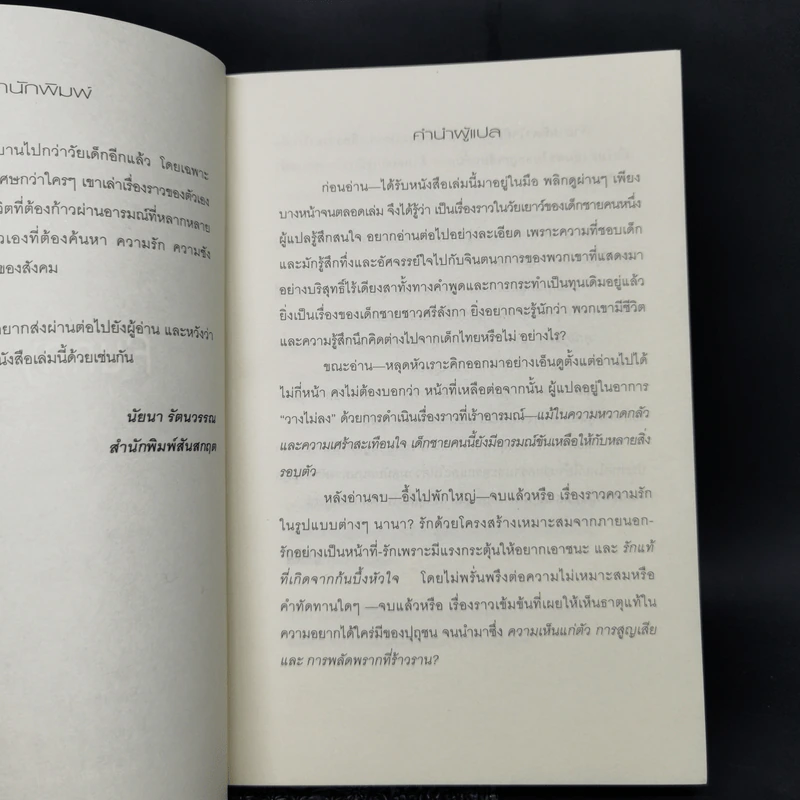 านักพิมพ์
บานไปกว่าวัยเด็กอีกแล้ว โดยเฉพาะ
ศษกว่าใครๆ เขาเล่าเรื่องราวของตัวเอง
วิตที่ต้องก้าวผ่านอารมณ์ที่หลากหลาย
วเองที่ต้องค้นหา ความรัก ความชัง
ของสังคม
อยากส่งผ่านต่อไปยังผู้อ่าน และหวังว่า
นังสือเล่มนี้ด้วยเช่นกัน
นัยนา รัตนวรรณ
สำนักพิมพ์สันสกฤต
คำนำผู้แปล
ก่อนอ่าน—ได้รับหนังสือเล่มนี้มาอยู่ในมือ พลิกดูผ่านๆ เพียง
บางหน้าจนตลอดเล่ม จึงได้รู้ว่า เป็นเรื่องราวในวัยเยาว์ของเด็กชายคนหนึ่ง
ผู้แปลรู้สึกสนใจ อยากอ่านต่อไปอย่างละเอียด เพราะความที่ชอบเด็ก
และมักรู้สึกทึ่งและอัศจรรย์ใจไปกับจินตนาการของพวกเขาที่แสดงมา
อย่างบริสุทธิ์ไร้เดียงสาทั้งทางคำพูดและการกระทำเป็นทุนเดิมอยู่แล้ว
ยิ่งเป็นเรื่องของเด็กชายชาวศรีลังกา ยิ่งอยากจะรู้นักว่า พวกเขามีชีวิต
และความรู้สึกนึกคิดต่างไปจากเด็กไทยหรือไม่ อย่างไร?
ขณะอ่าน—หลุดหัวเราะคิกออกมาอย่างเอ็นดูตั้งแต่อ่านไปได้
ไม่กี่หน้า คงไม่ต้องบอกว่า หน้าที่เหลือต่อจากนั้น ผู้แปลอยู่ในอาการ
“วางไม่ลง” ด้วยการดำเนินเรื่องราวที่เร้าอารมณ์—แม้ในความหวาดกลัว
และความเศร้าสะเทือนใจ เด็กชายคนนี้ยังมีอารมณ์ขันเหลือให้กับหลายสิ่ง
รอบตัว
หลังอ่านจบ—อึ้งไปพักใหญ่—จบแล้วหรือ เรื่องราวความรัก
ในรูปแบบต่างๆ นานา? รักด้วยโครงสร้างเหมาะสมจากภายนอก-
รักอย่างเป็นหน้าที่-รักเพราะมีแรงกระตุ้นให้อยากเอาชนะ และ รักแท้
ที่เกิดจากก้นบึ้งหัวใจ โดยไม่พรั่นพรึงต่อความไม่เหมาะสมหรือ
คำทัดทานใดๆ —จบแล้วหรือ เรื่องราวเข้มข้นที่เผยให้เห็นธาตุแท้ใน
ความอยากได้ใคร่มีของปุถุชน จนนำมาซึ่ง ความเห็นแก่ตัว การสูญเสีย
และ การพลัดพรากที่ร้าวราน?